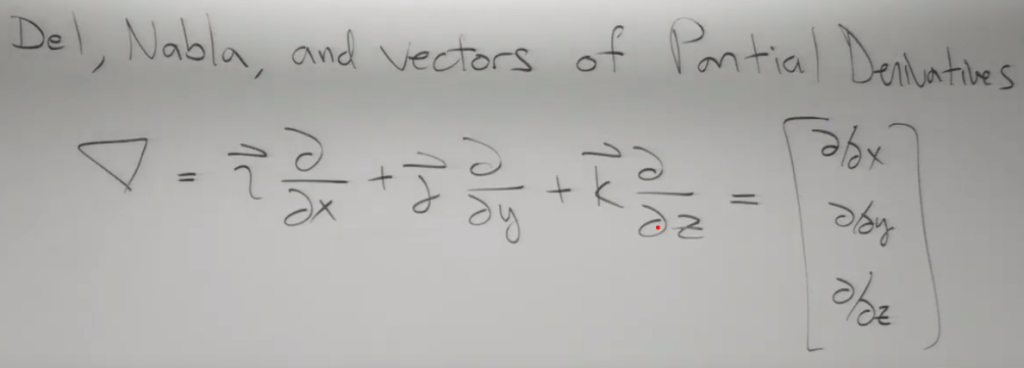 Del, Nabla, and vectors of Partial Derivatives
∇ = i⃗ ∂/∂x + j⃗ ∂/∂y + k⃗ ∂/∂z = [∂/∂x ∂/∂y ∂/∂z]